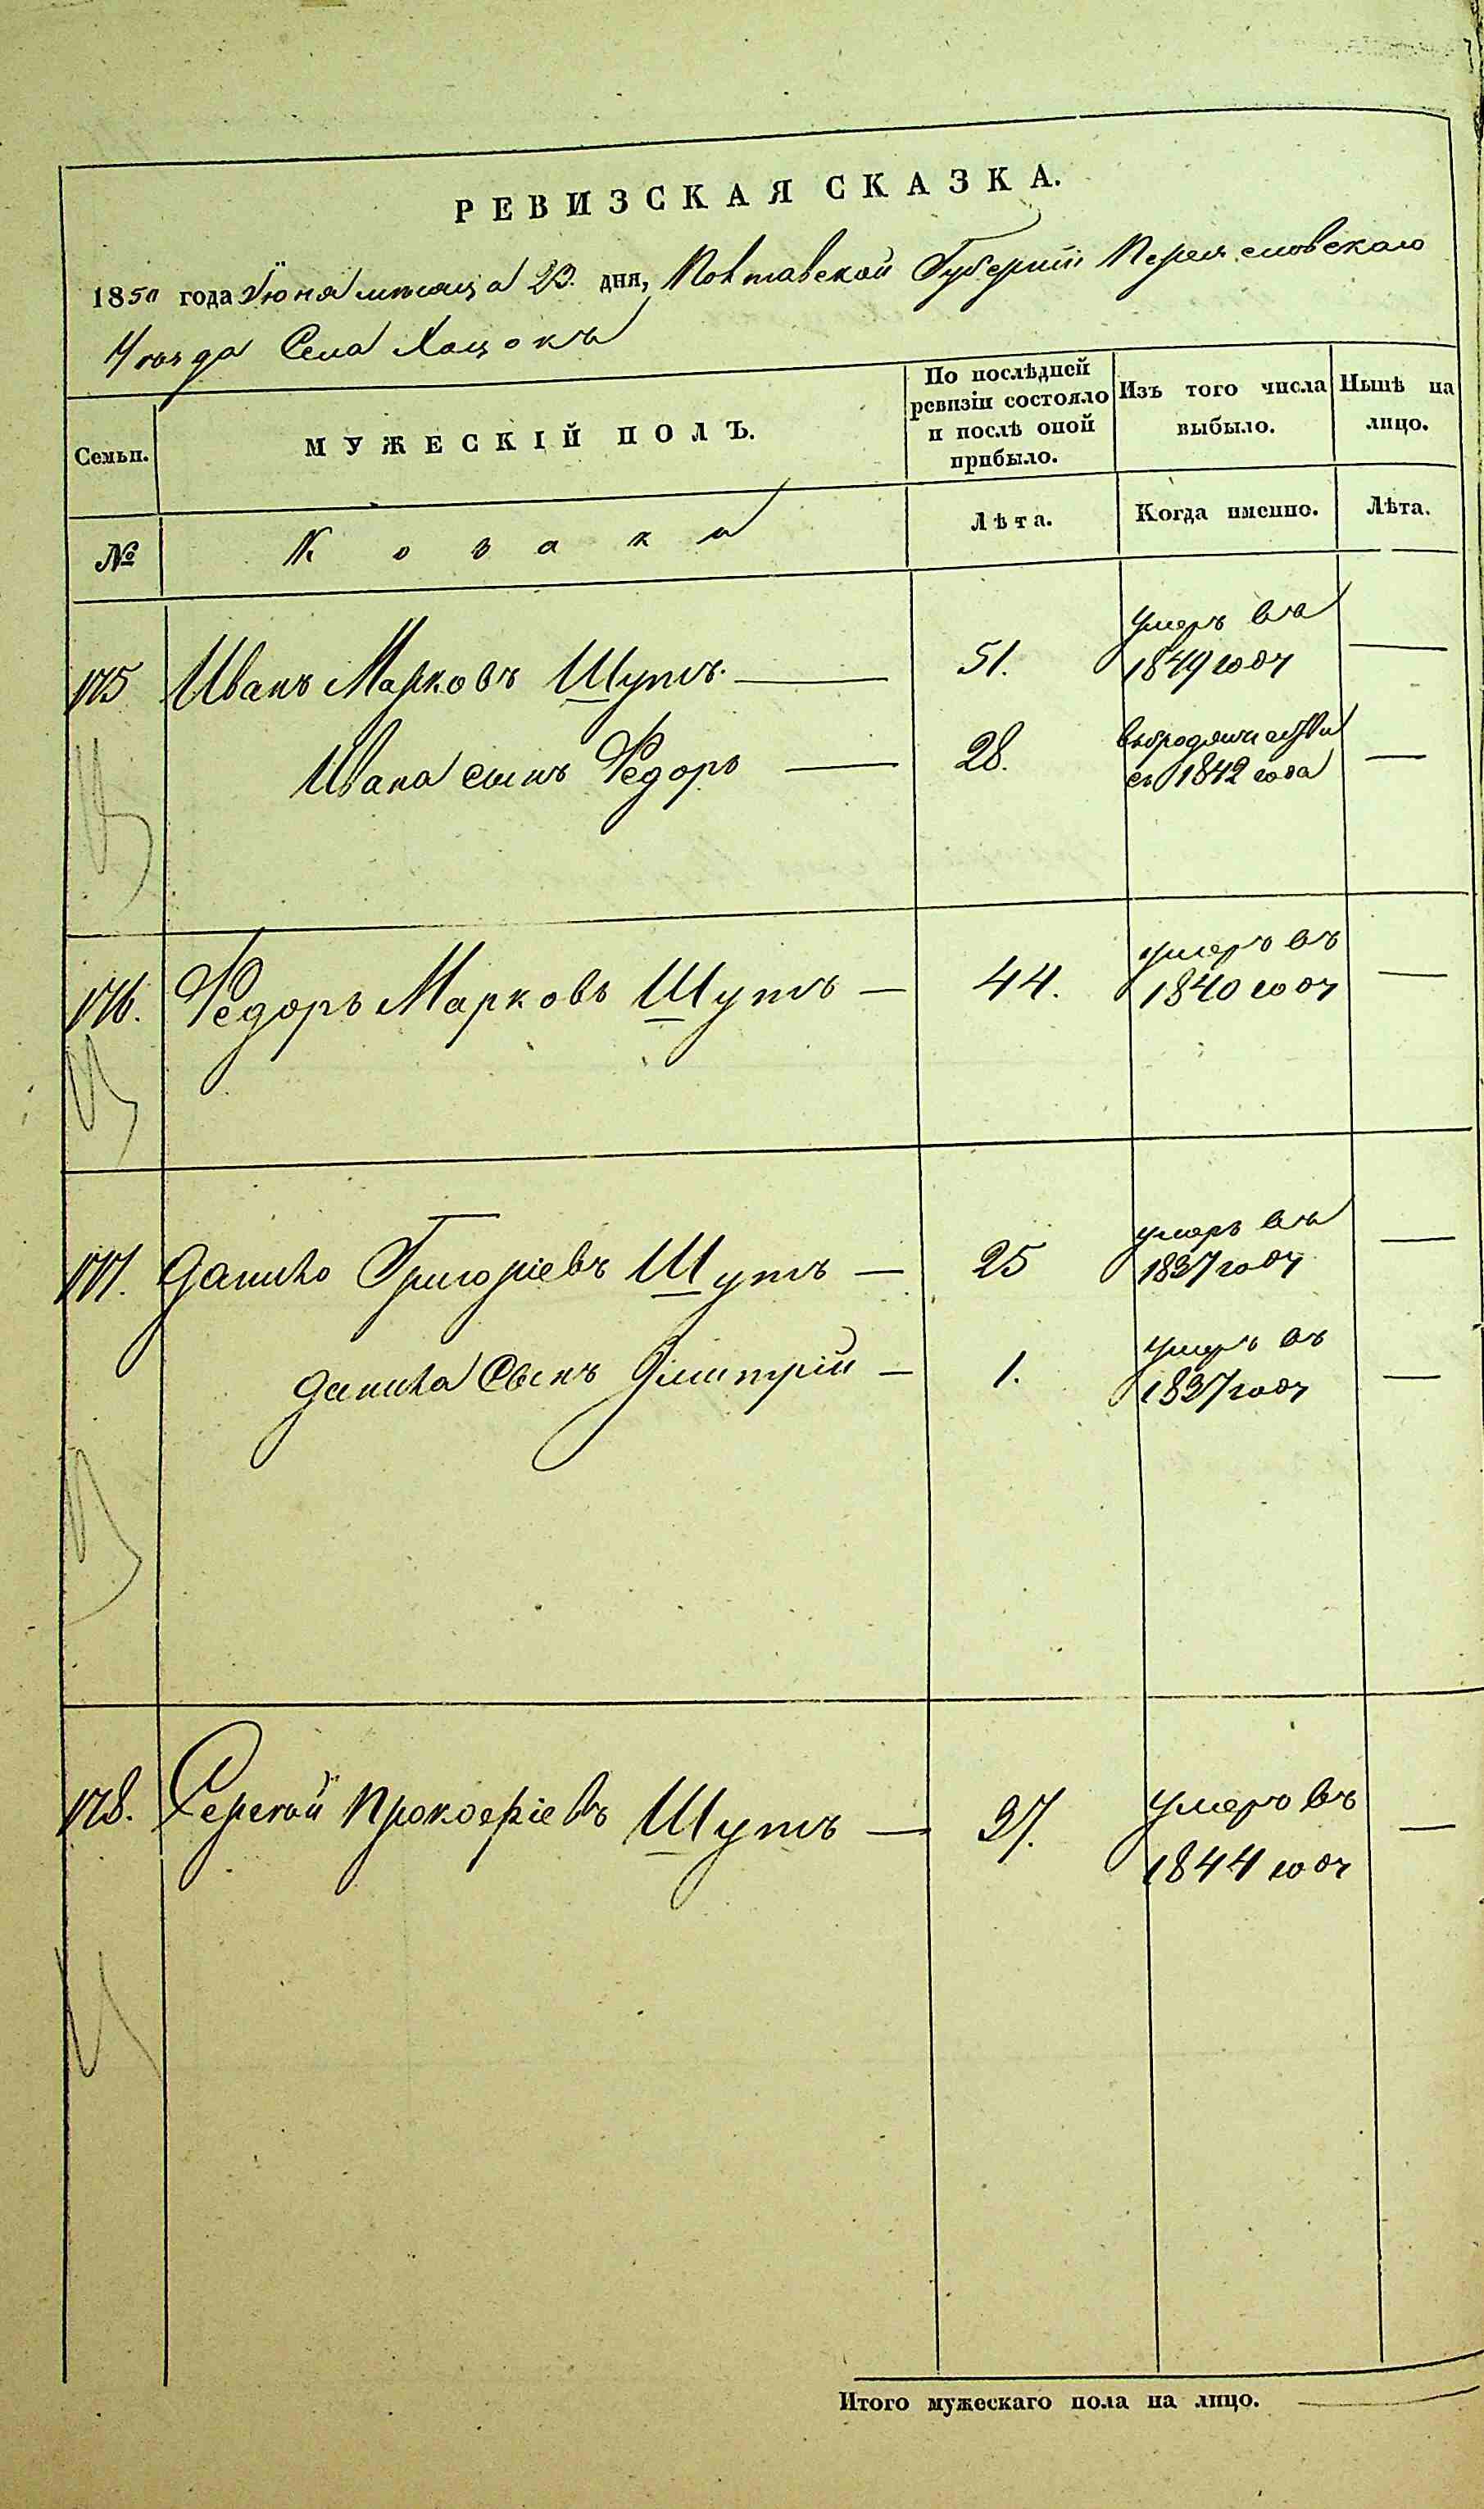 РЕВИЗСКАЯ СКАЗКА.
1850 года Іюня мѣсяца 23. дня, Полтавской Губерніи Переясловскаго
Уѣзда Села Хацокъ
Семьи.
МУЖЕСКІЙ ПОЛЪ.
По послѣдней ревизіи состояло и послѣ оной прибыло.
Изъ того числа выбыло.
Нынѣ на лицо.
№
Козаки
Лѣта.
Когда именно.
Лѣта.
175 Иванъ Марковъ Шутъ. — 51. умеръ въ —
1849 году
Ивана сынъ Федоръ — 28. въ бродяжествѣ —
съ 1842 года
176. Федоръ Марковъ Шутъ — 44. умеръ въ —
1840 году
177. Данило Григоріевъ Шутъ — 25 умеръ въ —
1837 году
Данила Сынъ Дмитрій — 1. умеръ въ —
1837 году
178. Сергѣй Прокофіевъ Шутъ — 37. умеръ въ —
1844 году
Итого мужескаго пола на лицо. —